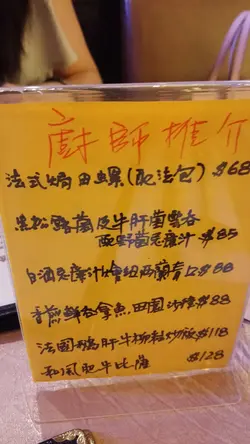 廚師推介
法式焗田螺(配法包) $68
黑松露菌及牛肝菌雲吞
配野菌忌廉汁 $85
白酒忌廉汁燴紐西蘭青口 $88
香煎鮮吞拿魚,田園沙律 $88
法國鴨肝牛柳粒炒飯 $118
和風肥牛比薩 $128